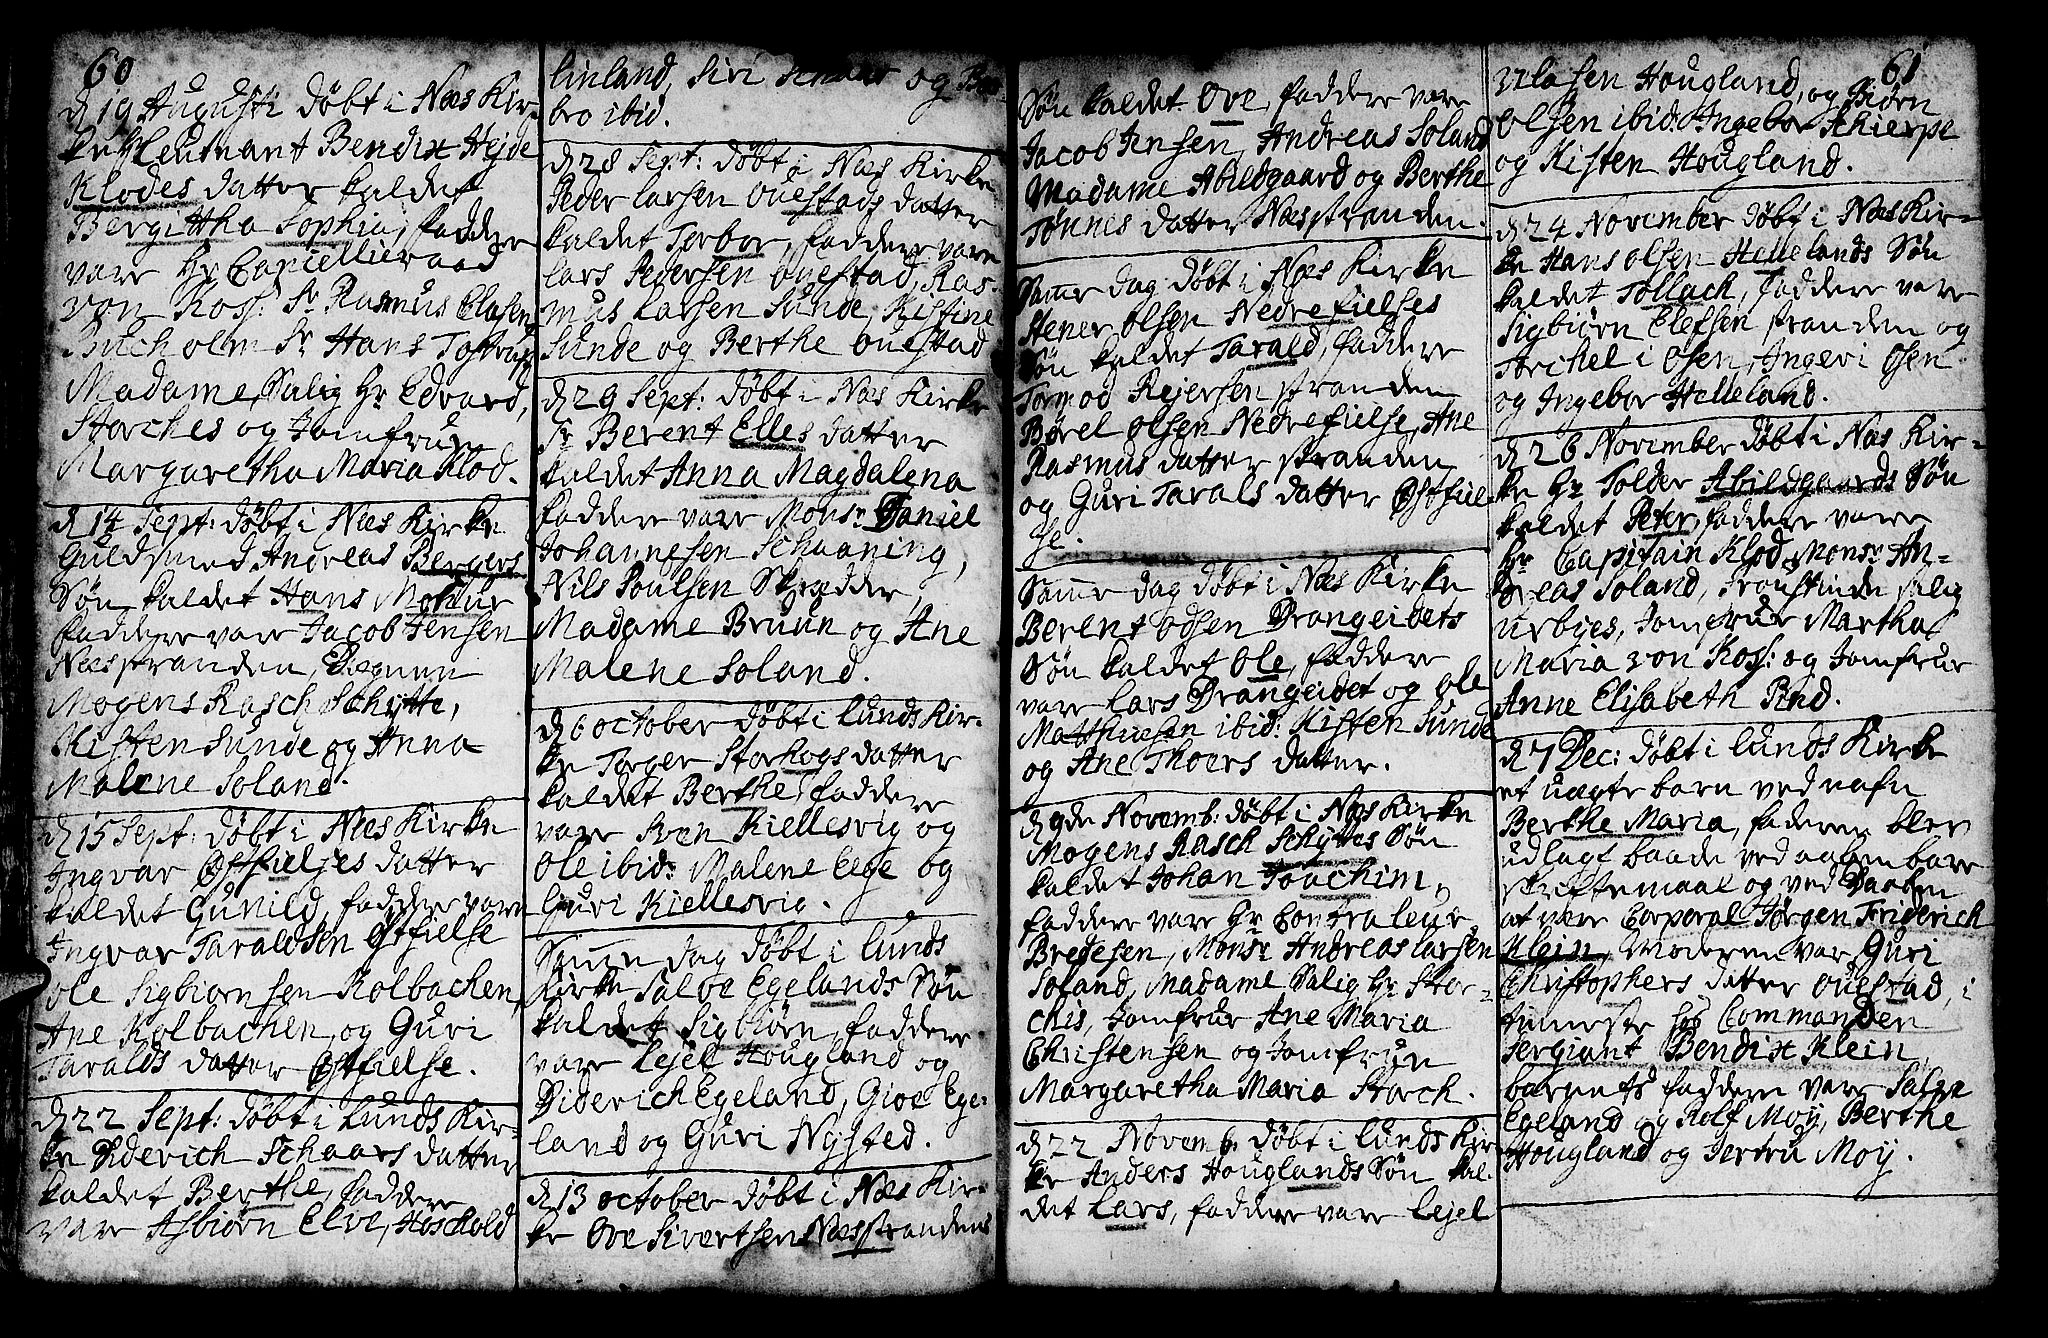 60
d 19 Augusti døbt i Næs Kir-
ke Hr Leutnant Bendix Hejde
Klodes datter kaldet
Bergittha Sophia, faddere
vare Hr Cancelliraad
von Koss: Sr Rasmus Clasen
Bucholm Sr Hans Tostrup
Madame Salig Hr Edvard
Storches og Jomfrue
Margaretha Maria Klod.
d 14 Sept: døbt i Næs Kirke
Guldsmed Andreas Bergers
Søn kaldet Hans Mohur
faddere vare Jacob Jensen
Næsstranden,
Mogens Rasch Schytte,
Kisten Sunde og Anna
Malene Soland.
d 15 Sept: døbt i Næs Kirke
Ingvar Østfieljes datter
kaldet Gunild, faddere vare
Ingvar Taraldsen Østfielse
Ole Sigbiørnsen Kolbachen,
Ane Kolbachen og Guri
Taralds datter Østfielse.
d 22 Sept: døbt i Lunds Kir-
ke Diderich Schaars datter
kaldet Berthe, faddere
vare Asbiørn Elve, Hoskold
linland, Siri Schaar og Bar-
bro ibid.
d 28 Sept: døbt i Næs Kirke
Peder Larsen Ouestads datter
kaldet Torbor, faddere vare
Lars Pedersen Ouestad, Ras-
mus Larsen Sunde, Kistine
Sunde og Berthe Ouestad
d 29 Sept: døbt i Næs Kirke
Sr Berent Elles datter
kaldet Anna Magdalena
faddere vare Monsr Daniel
Johannessen Schaaning,
Nils Poulsen Skrædder,
Madame Bruun og Ane
Malene Soland.
d 6 October døbt i Lunds Kir-
ke Torger Storhogs datter
kaldet Berthe, faddere
vare Sven Kiellesvig og
Ole ibid: Malene Ege og
Guri Kiellesvig.
Samme dag døbt i Lunds
Kirke Salve Egelands Søn
kaldet Sigbiørn, faddere
vare Lejel Hougland og
Diderich Egeland, Gioe Ege-
land og Guri Nysted.
d 13 October døbt i Næs Kir-
ke Ove Sivertsen Næsstrandens
61
Søn kaldet Ove, faddere vare
Jacob Jensen, Andreas Soland
Madame Abildgaard og Berthe
Tønnes datter Næsstranden.
Samme dag døbt i Næs Kirke
Stener Olsen Nedrefielses
Søn kaldet Tarald, faddere
Tormod Rejersen stranden
Børel Olsen Nedrefielse, Ane
Rasmus datter stranden
og Guri Tarals datter Østfiel
se.
Samme dag døbt i Næs Kirke
Berent Odsen Drangeidets
Søn kaldet Ole, faddere
vare Lars Drangeidet og Ole
Matthiesen ibid: Kisten Sunde
og Ane Thoers datter.
d 9de Novemb: døbt i Næs Kirke
Mogens Rasch Schyttes Søn
kaldet Johan Joachim,
faddere vare Hr Contraleur
Bredesen, Monsr Andreas Larsen
Soland, Madame Salig Hr Stor-
chis, Jomfrue Ane Maria
Christensen og Jomfrue
Margaretha Maria Storch.
d 22 Novemb døbt i Lunds Kir
ke Anders Houglands Søn kal-
det Lars, faddere vare Lejel
Clasen Hougland, og Biørn
Olsen ibid: Ingebor Schierpe
og Kisten Hougland.
d 24 November døbt i Næs Kir-
ke Hans Olsen Hellelands Søn
kaldet Tollach, faddere vare
Sigbiørn Elefsen stranden og
Torchel i Osen, Ingeri Osen
og Ingebor Helleland.
d 26 November døbt i Næs Kir-
ke Hr Tolder Abildgaards Søn
kaldet Peter, faddere vare
Hr Capitain Klod, Monsr An-
dreas Soland, Proustinde salig
Urbyes, Jomfrue Martha
Maria von Koss: og Jomfrue
Anne Elisabeth Pnd.
d 7 Dec: døbt i Lunds Kirke
et uægte barn ved nafn
Berthe Maria, faderen blev
udlagt baade ved aabenbare
skriftemaal og ved Daaben
at være Corporal Jørgen Friderich
Klein, Moderen var Guri
Christophers datter Ouestad, i
tieneste hos Commanden
Sergiant Bendix Klein,
barnets faddere vare Salve
Egeland og Rolf Moy, Berthe
Hougland og Jertru Moy.